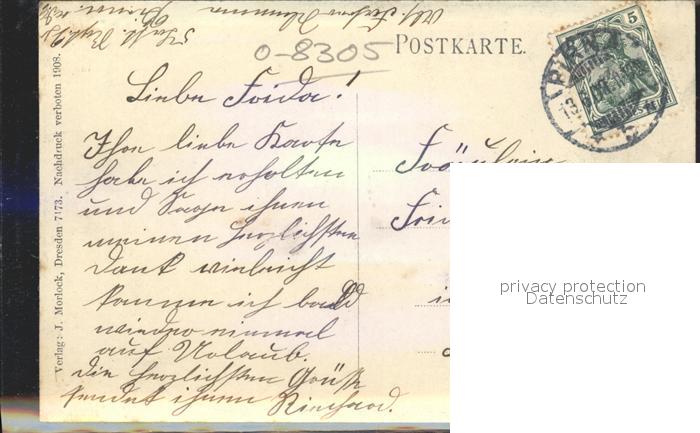 O-8305
POSTKARTE.
5
PIRNA
Liebe Frida!
Ihre liebe Karte
habe ich erhalten
und Sage ihnen
meinen herzlichsten
Dank vieleicht
komme ich bald
wieder einmal
auf Urlaub.
die herzlichsten Grüße
sendet ihnen Richard.
Fräulein
Verlag: J. Morlock, Dresden 7173. Nachdruck verboten 1908.
privacy protection
Datenschutz